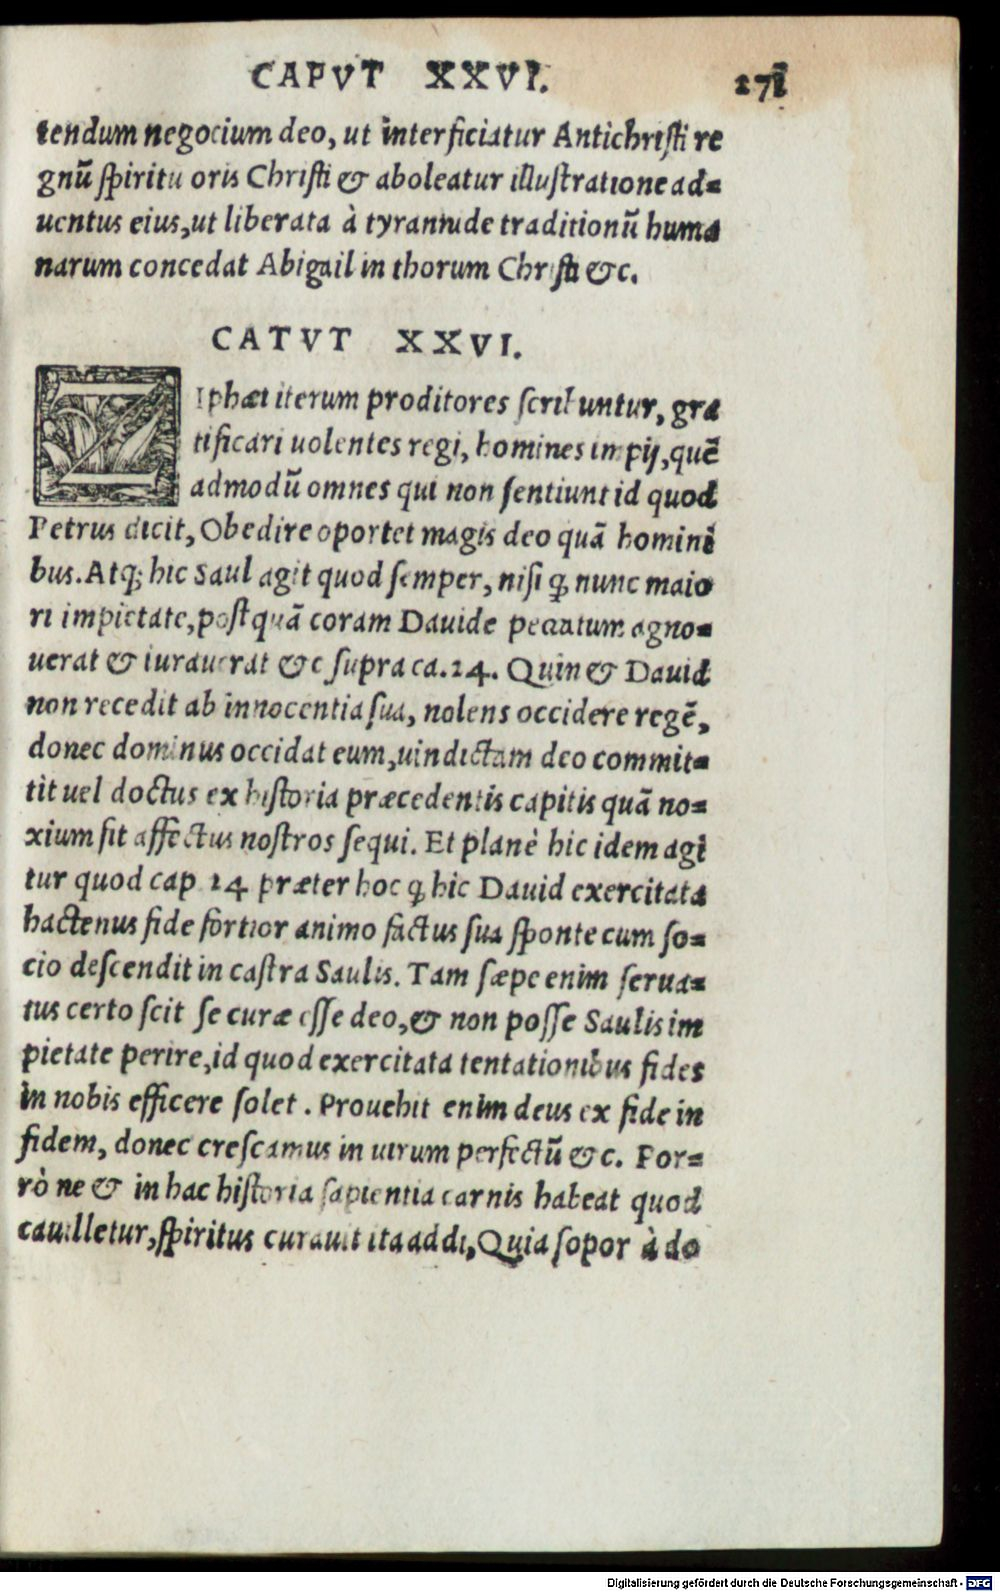 CAPVT XXVI. 271
tendum negocium deo, ut interficiatur Antichristi re
gnū spiritu oris Christi & aboleatur illustratione ad=
uentus eius, ut liberata à tyrannide traditionū huma
narum concedat Abigail in thorum Christi &c.
CATVT XXVI.
ZIphæi iterum proditores scribuntur, gra
tificari uolentes regi, homines impij, quē
admodū omnes qui non sentiunt id quod
Petrus dicit, Obedire oportet magis deo quā homini
bus. Atq; hic Saul agit quod semper, nisi ꝙ nunc maio
ri impietate, postquā coram Dauide peccatum agno=
uerat & iurauerat &c supra ca. 24. Quin & Dauid
non recedit ab innocentia sua, nolens occidere regē,
donec dominus occidat eum, uindictam deo commit=
tit uel doctus ex historia præcedentis capitis quā no=
xium sit affectus nostros sequi. Et planè hic idem agi
tur quod cap 24 præter hoc ꝙ hic Dauid exercitata
hactenus fide fortior animo factus sua sponte cum so=
cio descendit in castra Saulis. Tam sæpe enim serua=
tus certo scit se curæ esse deo, & non posse Saulis im
pietate perire, id quod exercitata tentationibus fides
in nobis efficere solet. Prouehit enim deus ex fide in
fidem, donec crescamus in uirum perfectū &c. Por=
rò ne & in hac historia sapientia carnis habeat quod
cauilletur, spiritus curauit ita addi, Quia sopor à do
Digitalisierung gefördert durch die Deutsche Forschungsgemeinschaft - DFG